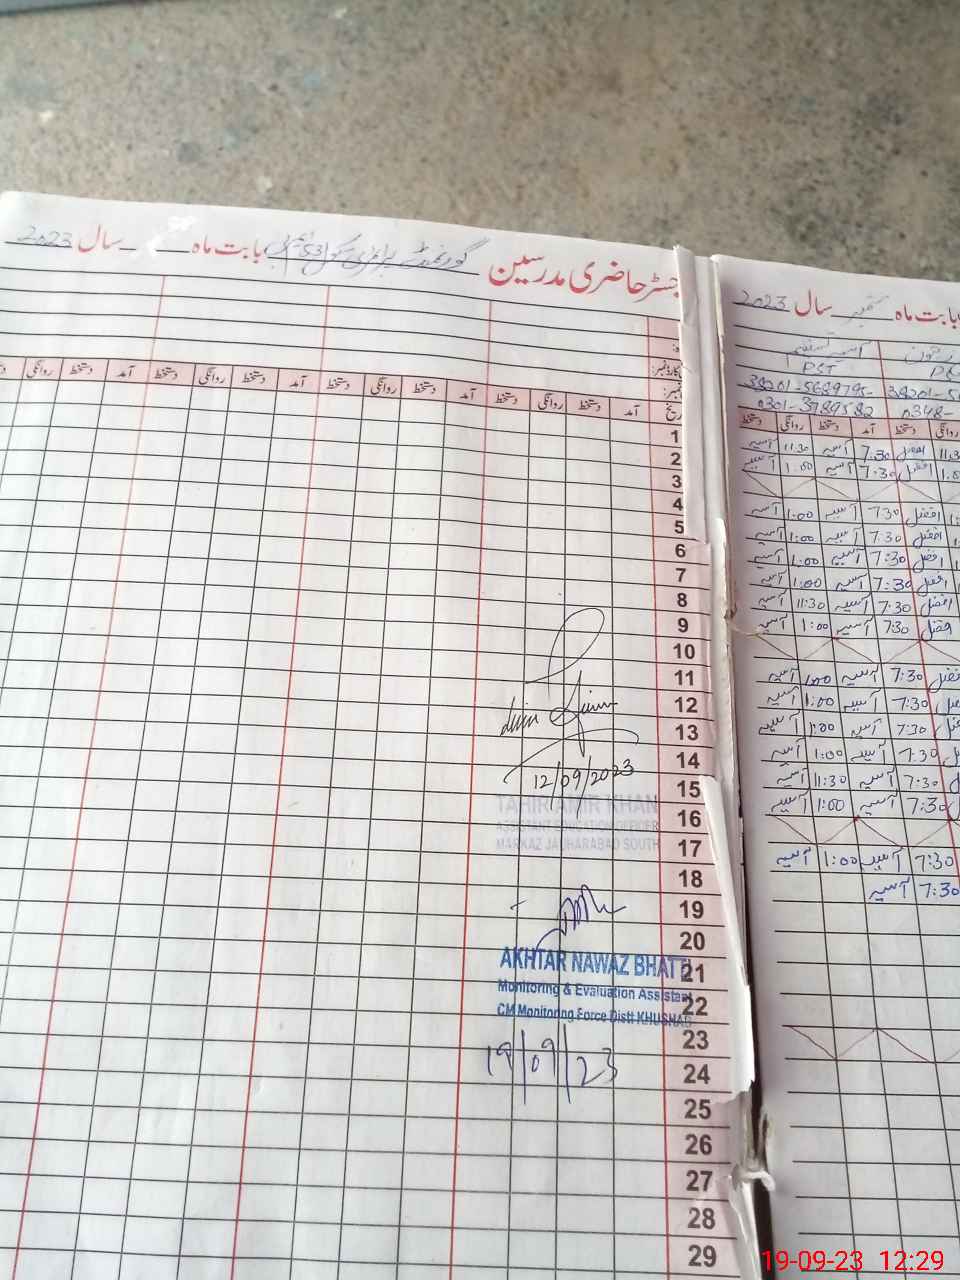 رجسٹر حاضری مدرسین گورنمنٹ پرائمری سکول بابت ماہ سال 2023
کارڈ نمبر:
نمبر:
تاریخ آمد دستخط روانگی دستخط آمد دستخط روانگی دستخط آمد دستخط روانگی دستخط آمد دستخط روانگی
1
2
3
4
5
6
7
8
9
10
11
12
13
14
15
16
17
18
19
20
21
22
23
24
25
26
27
28
29
12/09/2023
TAHIR AMIR KHAN
ASSISTANT EDUCATION OFFICER
MARKAZ JAUHARABAD SOUTH
AKHTAR NAWAZ BHATTI
Monitoring & Evaluation Assistant
CM Monitoring Force Distt KHUSHAB
19/09/23
بابت ماہ ستمبر سال 2023
آسیہ
PST
38201-
0301-3789582 0348-
روانگی دستخط آمد دستخط روانگی
افضل 7:30 آسیہ 11:30 آسیہ
افضل 7:30 آسیہ 1:00 آسیہ
افضل 7:30 آسیہ 1:00 آسیہ
افضل 7:30 آسیہ 1:00 آسیہ
افضل 7:30 آسیہ 1:00 آسیہ
افضل 7:30 آسیہ 1:00 آسیہ
افضل 7:30 آسیہ 11:30 آسیہ
افضل 7:30 آسیہ 1:00 آسیہ
افضل 7:30 آسیہ 1:00 آسیہ
افضل 7:30 آسیہ 1:00 آسیہ
افضل 7:30 آسیہ 1:00 آسیہ
افضل 7:30 آسیہ 1:00 آسیہ
افضل 7:30 آسیہ 11:30 آسیہ
افضل 7:30 آسیہ 1:00 آسیہ
7:30 آسیہ 1:00 آسیہ
7:30 آسیہ
19-09-23 12:29